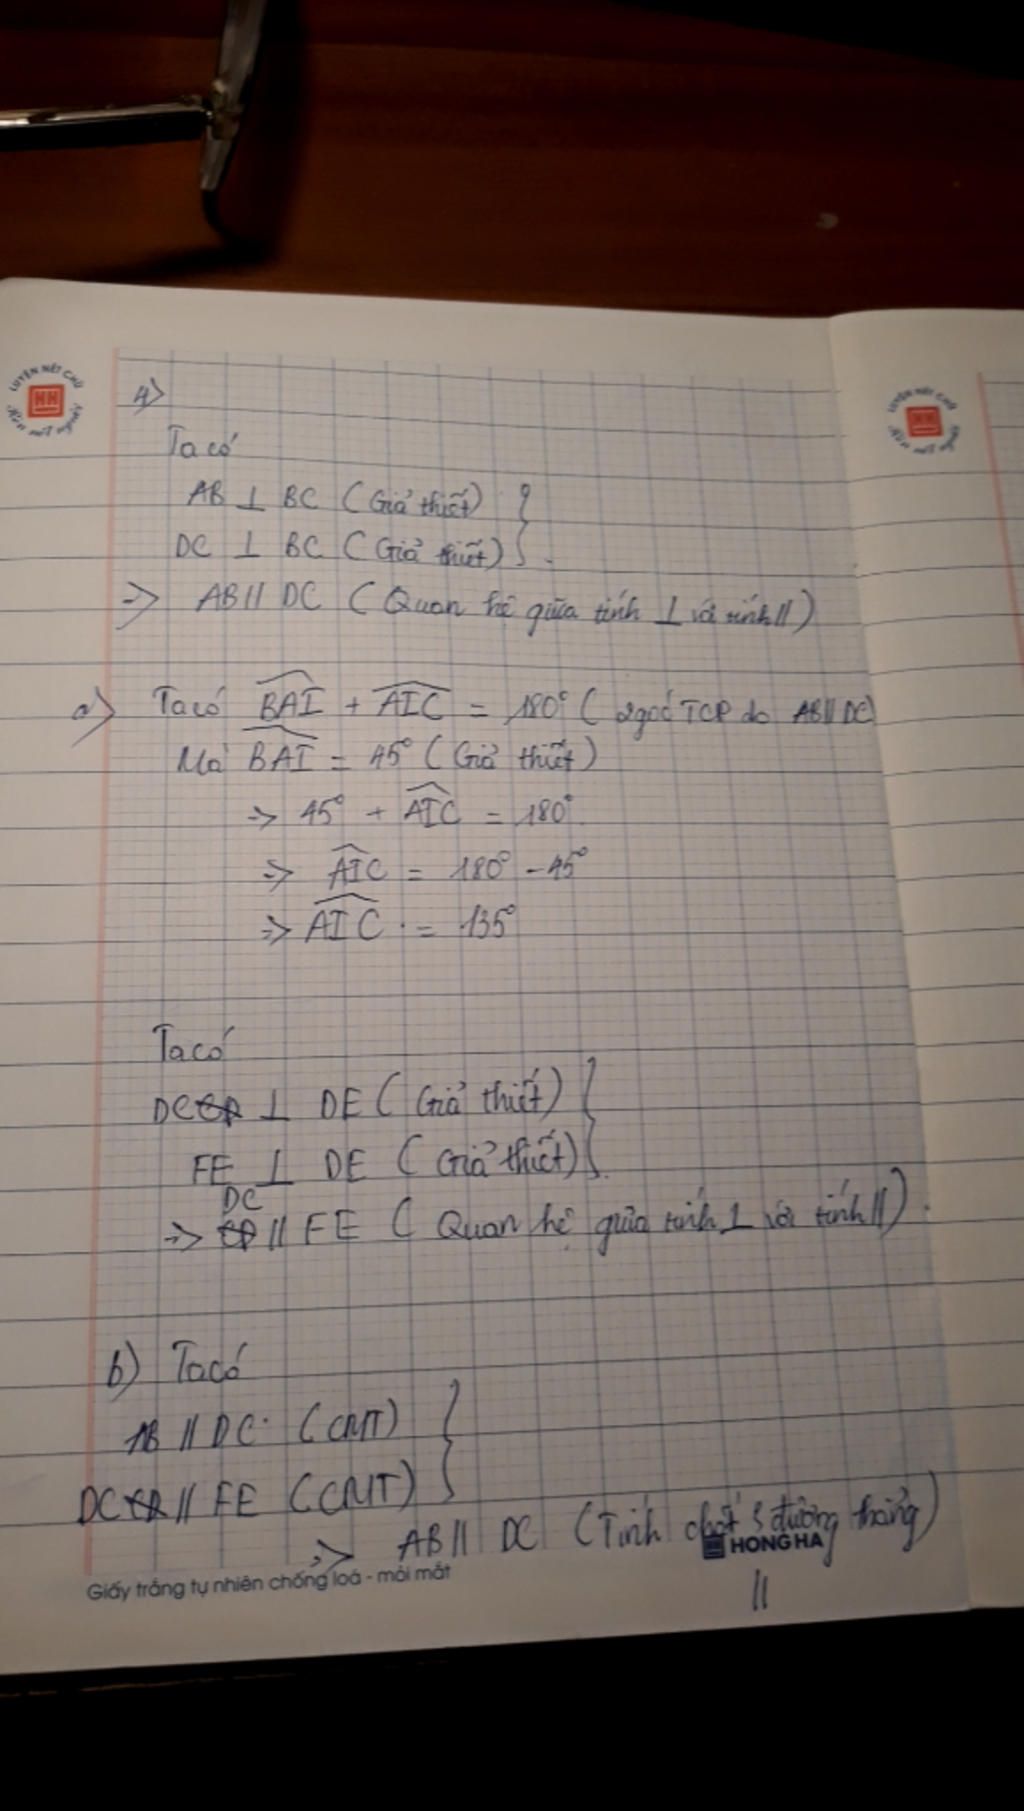 LUYỆN NÉT CHỮ
HH
Rèn nết người
LUYỆN NÉT CHỮ
Rèn nết người
4)
Ta có
AB ⊥ BC (Giả thiết) }
DC ⊥ BC (Giả thiết) }
=> AB // DC (Quan hệ giữa tính ⊥ với tính //)
a) Ta có BAI + AIC = 180° (2 góc TCP do AB // DC)
Mà BAI = 45° (Giả thiết)
=> 45° + AIC = 180°
=> AIC = 180° - 45°
=> AIC = 135°
Ta có
DC ⊥ DE (Giả thiết) }
FE ⊥ DE (Giả thiết) }
DC
=> // FE (Quan hệ giữa tính ⊥ với tính //)
b) Ta có
AB // DC (CMT) }
DC // FE (CMT) }
=> AB // DC (Tính chất 3 đường thẳng)
//
HONG HA
Giấy trắng tự nhiên chống loá - mỏi mắt